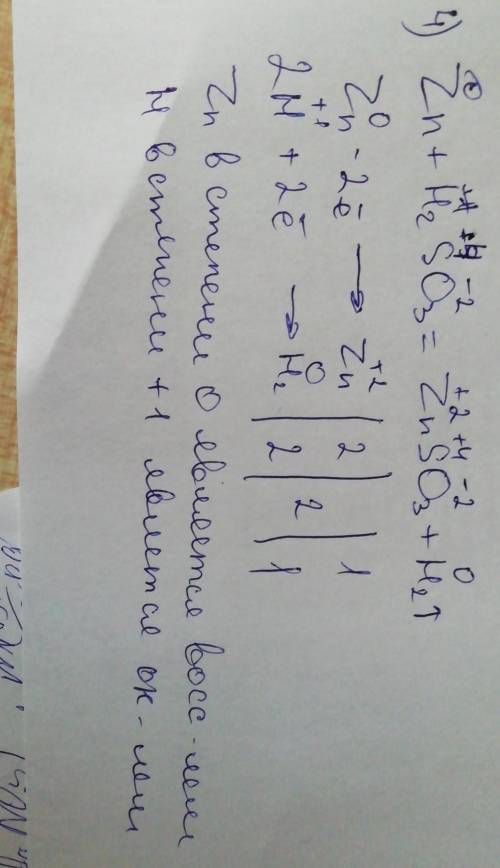 4) Zn⁰ + H₂⁺¹S⁺⁴O₃⁻² = Zn⁺²S⁺⁴O₃⁻² + H₂⁰↑
Zn⁰ - 2ē → Zn⁺² | 2 | 1
2H⁺¹ + 2ē → H₂⁰ | 2 | 2 | 1
Zn в степени 0 является восс-лем
H в степени +1 является ок-лем